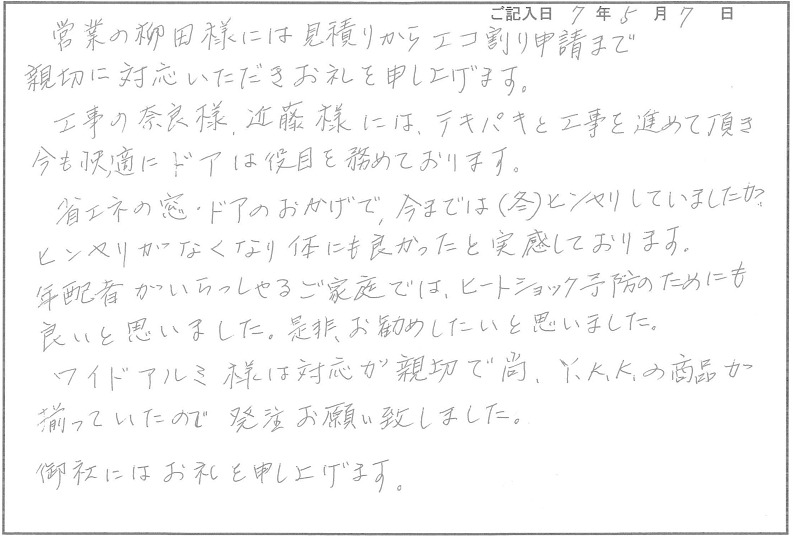 ご記入日 7 年 5 月 7 日
営業の柳田様には見積りからエコ割り申請まで
親切に対応いただきお礼を申し上げます。
工事の奈良様、近藤様には、テキパキと工事を進めて頂き
今も快適にドアは役目を務めております。
省エネの窓・ドアのおかげで、今までは(冬)ヒンヤリしていましたが、
ヒンヤリがなくなり体にも良かったと実感しております。
年配者がいらっしゃるご家庭では、ヒートショック予防のためにも
良いと思いました。是非、お勧めしたいと思いました。
ワイドアルミ様は対応が親切で尚、Y.K.K.の商品が
揃っていたので発注お願い致しました。
御社にはお礼を申し上げます。